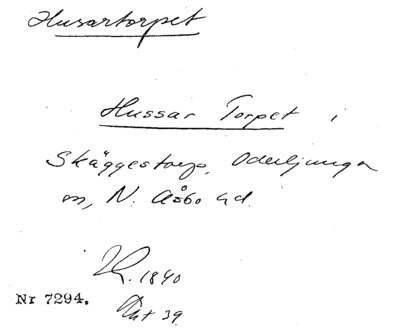 Husartorpet
Hussar Torpet i
Skäggestorp, Oderljunga
sn, N. Åsbo hd.
1840
Nr 7294.
Akt 39